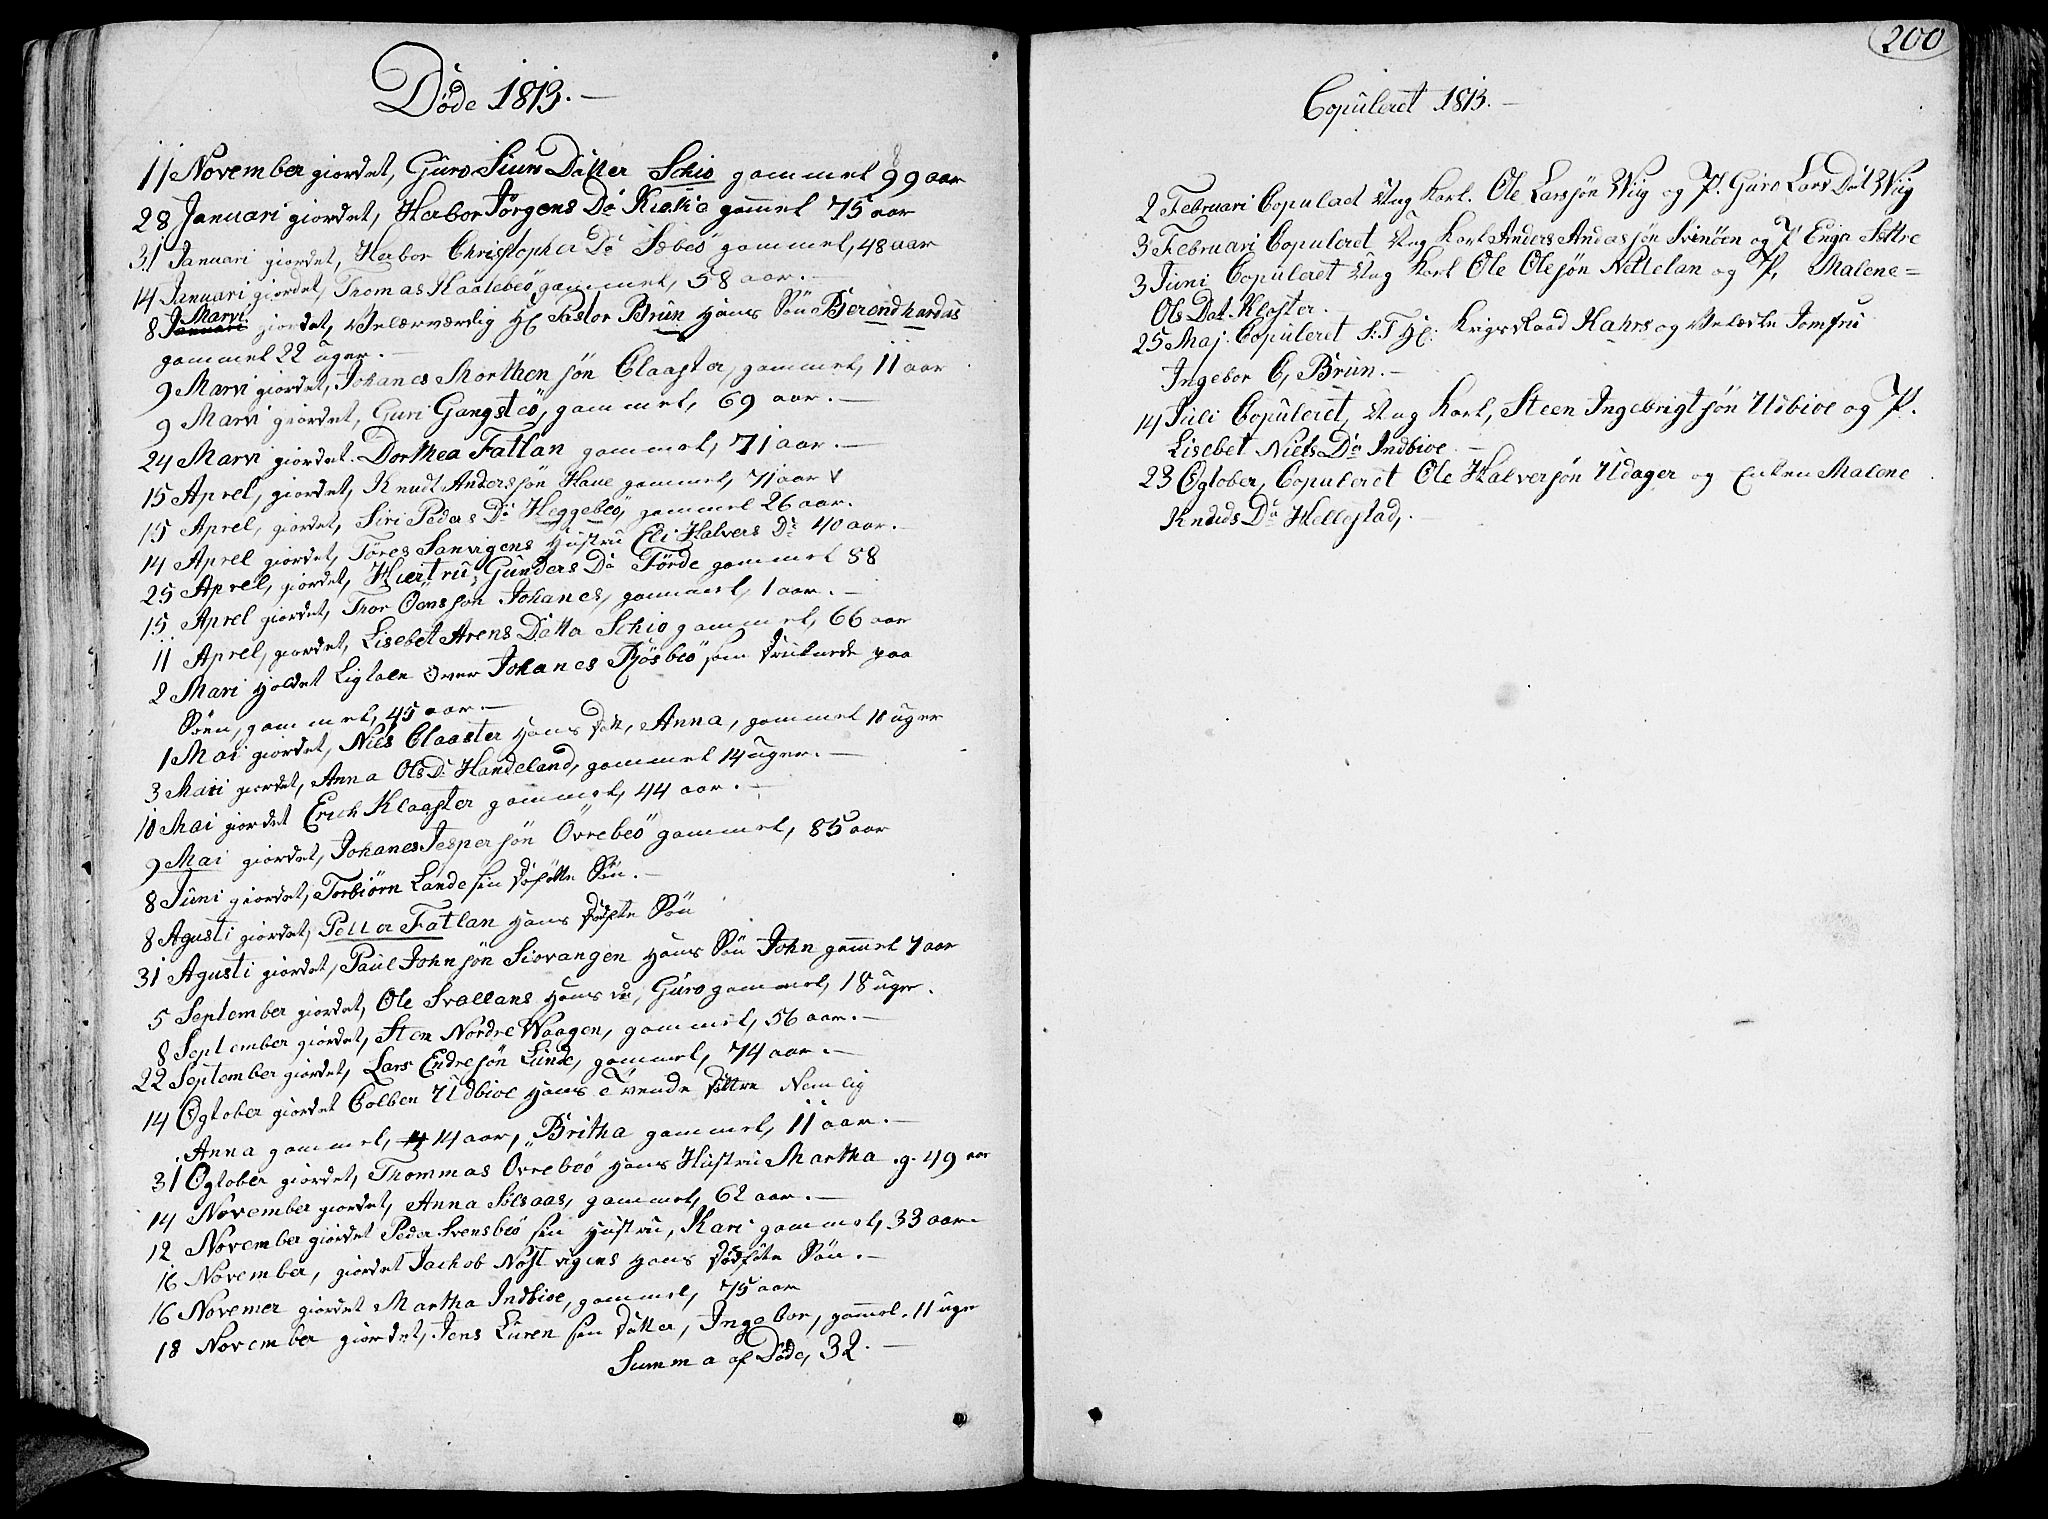 Døde 1813. —
11 November giordet, Guro Siurs Datter Schio gammel 99 aar
28 Januari giordet, Habor Jørgens Da gammel 75 aar
31 Januari giordet, Habor Christopher Da Sæbeö gammel, 48 aar
14 Januari giordet, Thomas Kaatebeö, gammel, 58 aar. —
Marvi
8 Januari giordet, Velærværdig H: Pastor Brun Hans Sön Berendhardus
gammel 22 uger. —
9 Marvi giordet, Johanes Morthen sön Claaster, gammel, 11 aar
9 Marvi giordet, Guri Gangsteö, gammel, 69 aar. —
24 Marvi giordet. Dorthea Fatlan gammel, 71 aar. —
15 Aprel, giordet, Knudt Anderssön Haue gammel, 71 aar
15 Aprel, giordet, Siri Peders Da Heggebeö, gammel 26 aar.
14 Aprel giordet, Tores Sanvigens Hustru Eli Halvers Da 40 aar. —
25 Aprel, giordet, Hiertru, Gunders Da Förde gammel 58
15 Aprel giordet, Thor Johanes, gammel, 1 aar. —
11 Aprel, giordet, Lisebet Arens Datter Schio gammel, 66 aar
2 Mari Holdet Ligtale over Johanes som Druknede paa
Söen, gammel, 45 aar. —
1 Mai giordet, Niels Claaster Hans Datt, Anna, gammel 10 uger
3 Mai giordet, Anna Ols D: Handeland, gammel 14 uger. —
10 Mai giordet Erich Klaaster gammel, 44 aar. —
9 Mai giordet, Johanes Jesper sön Övrebeö gammel, 85 aar
8 Juni giordet, Torbiörn Lande sin Sön. —
8 Agusti giordet, Petter Fatlan Hans Sön
31 Agusti giordet, Paul Johnsön Siovangen Hans Sön John gammel 7 aar
5 September giordet, Ole Svallans Hans Guro gammel, 18 uger.
8 September giordet, Sten Nordre Waagen, gammel, 56 aar. —
22 September giordet, Lars Endresön Lunde, gammel, 74 aar. —
14 Ogtober giordet Colben Udbioe Hans Tvende Dottre Nemlig
Anna gammel, 14 aar, Britha gammel, 11 aar. —
31 Ogtober giordet, Thommas Ovrebeö Hans Hustru Martha .g. 49 aar
14 November giordet, Anna Sölsaas, gammel, 62 aar. —
12 November giordet Peder Svensbeö sin Hustru, Kari gammel, 33 aar
16 November, giordet Jachob Nöstvigens Hans Sön. —
16 Novemer giordet Martha Indbioe, gammel, 75 aar
18 November giordet, Jens Luren sin Datter, Ingebor, gammel. 11 uger
Summa af Döde, 32. —
200
Copuleret 1813. —
2 Februari Copulaet Ung Karl. Ole Larssön Wiig og P. Guro Lars Dat Wiig
3 Februari Copuleret Ung Karl Anders Anderssön Svinöen og P Enger Settre
3 Juni Copuleret Ung Karl Ole Olesön Nettelan og P. Malene=
Ols Dat. Kloster. —
25 Maj. Copuleret S:T H: Krigs Raad Hahrs og Velædle Jomfru
Ingebor C, Brun. —
14 Juli Copuleret, Ung Karl, Steen Ingebrigt sön Udbioe og P.
Lisebet Niels Da Indbioe. —
23 Ogtober, Copuleret Ole Halversön Udager og Enken Malene
Knuds Da Hellestad, . —